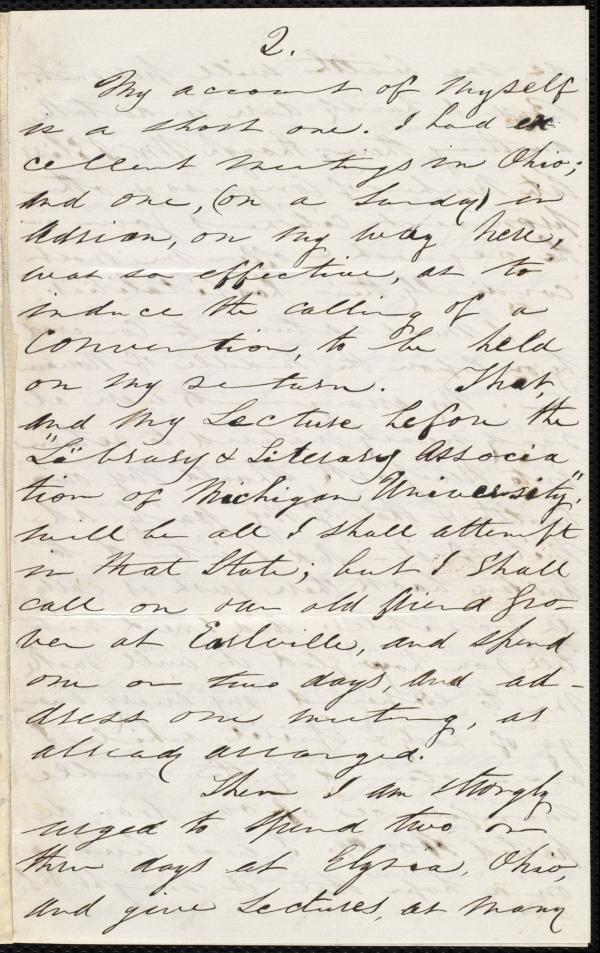 2.
My account of myself
is a short one. I had ex
cellent meetings in Ohio;
and one, (on a Sunday) in
Adrian, on my way here,
was so effective, as to
induce the calling of a
Convention, to be held
on my return. That,
and my Lecture before the
"Library & Literary Associa
tion of Michigan University",
will be all I shall attempt
in that State; but I shall
call on our old friend Gro-
ver at Earlville, and spend
one or two days, and ad-
dress one meeting, as
already arranged.
Then I am strongly
urged to spend two or
three days at Elyria, Ohio,
and give Lectures, as many